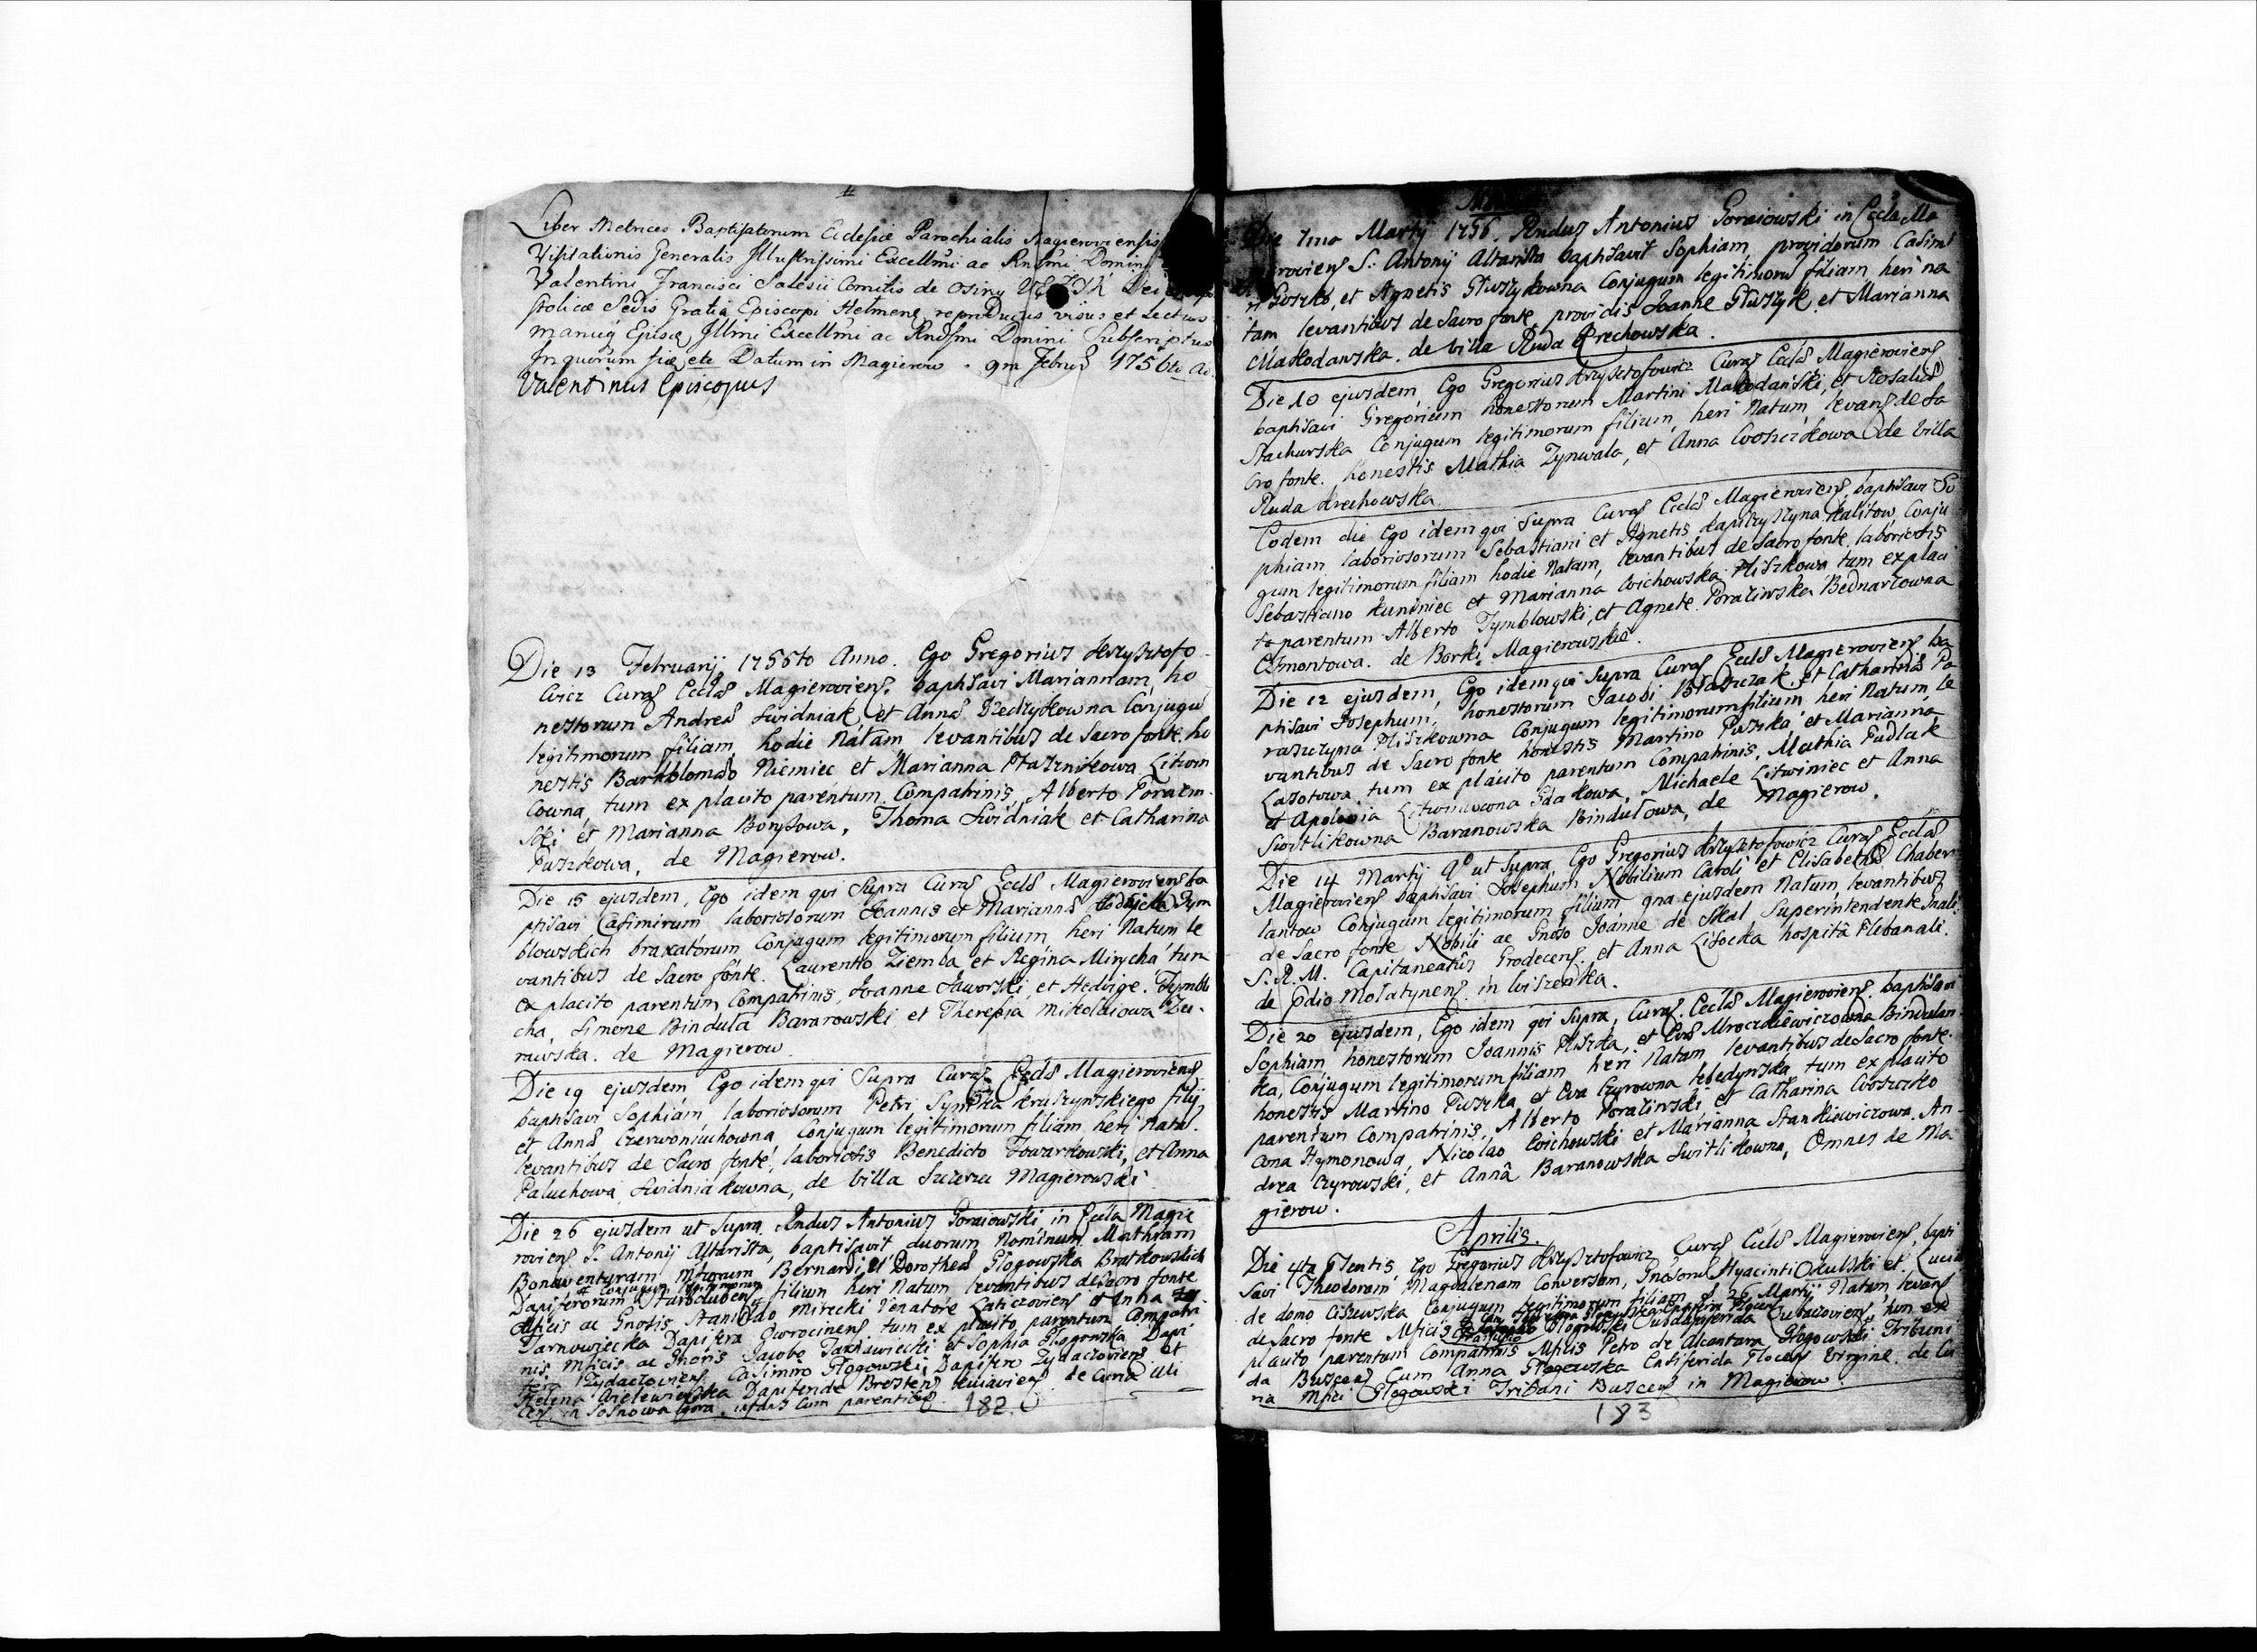 Liber Metrices Baptisatorum Ecclesiæ Parochialis Magieroviensis
Visitationis Generalis Illustrissimi Excellmi ac Rndmi Domini
Valentini Francisci Salesii Comitis de Osiny Dei
stolicæ Sedis Gratia Episcopi Helmens reproductus visus et Lectus
manuq Episc Illmi Excellmi ac Rndsmi Domini Subscriptus
In quorum fidem etc Datum in Magierow . 9na Febru 1756to
Valentinus Episcopus
Die 13 Februarij 1756to Anno. Ego Gregorius Krzysztofo
wicz Curas Eccls Magieroviens baptisavi Mariannam, ho
nestorum Andreæ Swidniak et Annæ Conjugu
legitimorum filiam, hodie Natam, levantibus de Sacro fonte. ho
nestis Barthlomæo Niemiec et Marianna Ptasznikowa Litwin
cowna, tum ex placito parentum Compatrinis, Alberto Poraziń
ski et Marianna Borysowa, Thoma Swidniak et Catharina
Puszkowa, de Magierow.
Die 15 ejusdem, Ego idem qui Supra Curas Eccls Magieroviens ba
ptisavi Casimirum, laboriosorum Joannis et Mariannæ Tym
blowskich braxatorum Conjugum legitimorum filium, heri Natum le
vantibus de Sacro fonte. Laurentio Ziemba et Regina Mirycha tum
ex placito parentum Compatrinis, Joanne Jaworski, et Hedvige. Tymbli
cha, Simone Binduła Baranowski et Theresia Mikołaiowa Zu-
rawska. de Magierow.
Die 19 ejusdem Ego idem qui Supra Curas Eccls Magieroviens
baptisavi Sophiam, laboriosorum Petri Kruszynskiego filij
et Annæ Czerwoniuchowna, Conjugum legitimorum filiam heri Natu.
levantibus de Sacro fonte, laboriosis Benedicto Towarkowski, et Anna
Paluchowa Swidniakowna, de Villa Magierowski
Die 26 ejusdem ut Supra Rndus Antonius Goraiowski, in Eccla Magie
roviens S. Antonij Altarista, baptisavit duorum Nominum Mathiam
Bonawenturam Mficorum Bernardi, et Dorotheæ Głogowska Bratkowskich
Conjugum legitimorum
Dapiferorum Starodubens filium heri Natum levantibus de Sacro fonte
Mficis ac Gnosis Stanislao Mirecki Venatore Laticzoviens et Anna
Tarnowiecka Dapifera Owrocinens tum ex placito parentum Compatri
nis. Mficis ac Gnosis Jacobo Tarnawiecki et Sophia Głogowska Dapi
fera Zydaczoviens Casimiro Głogowski Dapifero Zydaczoviens et
Helena Dapiferide Brestens Kuiaviens de Curia illi
in Sosnowa Gora. infans cum parentibus.
182.
Die 7ma Martij 1756. Rndus Antonius Goraiowski in Eccla Ma
gieroviens S. Antonij Altarista baptisavit Sophiam, providorum Casimi
ri Guszko, et Agnetis Głuszykowna Conjugum legitimoru filiam heri na
tam levantibus de Sacro fonte providis Joanne Głuszyk, et Marianna
Małodawska. de Villa Ruda Krechowska.
Die 10 ejusdem, Ego Gregorius Krzysztofowicz Curas Eccls Magieroviens
baptisavi Gregorium honestorum Martini Małodański, et Rosaliæ
Stachurska Conjugum legitimorum filium, heri Natum, levans de Sa
cro fonte. honestis Mathia Zynwala, et Anna Woszczkowa de Villa
Ruda Krechowska
Eodem die Ego idem qui Supra Curas Eccls Magieroviens baptisavi So
phiam laboriosorum Sebastiani et Agnetis Kalitow Conju
gum legitimorum filiam hodie Natam, levantibus de Sacro fonte laboriosis
Sebastiano Kunyniec et Marianna Woichowska Pliszkowa tum ex placi
to parentum Alberto Tymblowski, et Agnete Poraziwska Bednarzowna
Czmontowa. de Borki Magierowskie.
Die 12 ejusdem, Ego idem qui Supra Curas Eccls Magieroviens ba
ptisavi Josephum, honestorum Jacobi Błaszczak et Catharinæ Pa
raszczyna Pliszkowna Conjugum legitimorum filium heri Natum, le
vantibus de Sacro fonte honestis Martino Puszka, et Marianna
Lasotowa, tum ex placito parentum Compatrinis, Mathia Pudlak
et Apolonia Gdakowa, Michaele Litwiniec et Anna
Switlikowna Baranowska Bindułowa, de Magierow.
Die 14 Martij Ao ut Supra Ego Gregorius Krzysztofowicz Curas Eccls
Magieroviens baptisavi Josephum Nobilium Caroli et Elisabethæ Chaber
lantow Conjugum legitimorum filium 9na ejusdem Natum, levantibus
de Sacro fonte Nobili ac Gnoso Joanne de Skal Superintendente
S. R. M. Capitaneatus Grodecens. et Anna Lisocka hospita Plebanali.
de Ppdio Molatynens. in Wiszenka.
Die 20 ejusdem, Ego idem qui Supra, Curas. Eccls Magieroviens. baptisavi
Sophiam honestorum Joannis Pliszka, et Evæ Mroczkiewiczowna Bindulan
ka, Conjugum legitimorum filiam heri Natam levantibus de Sacro fonte.
honestis Martino Puszka et Eva Czyrowna Lebedynska tum ex placito
parentum Compatrinis, Alberto Poraziński et Catharina Woszczko
wna Hymonowa, Nicolao Woichowski et Marianna Stankiewiczowa. An-
drea Czyrowski, et Anna Baranowska Switlikowna, Omnes de Ma
gierow.
Aprilis.
Die 4ta Ptentis, Ego Gregorius Krzysztofowicz Curas Eccls Magieroviens, bapti
savi Theodoram Magdalenam Conversam, Gnosoru Hyacinti Okulski et Lucia
de domo Ciszewska Conjugum legitimorum filiam d. 26 Martij Natam, levans
de Sacro fonte Mficis Głogowski Subdapiferida tum ex
placito parentum Compatrinis Mficis Petro de Alcantara Głogowski Tribuni
da Buscens Cum Anna Głogowska Ensiferida Plocens Virgine. de Cu
ria Mfici Głogowski Tribuni Buscens in Magierow.
183